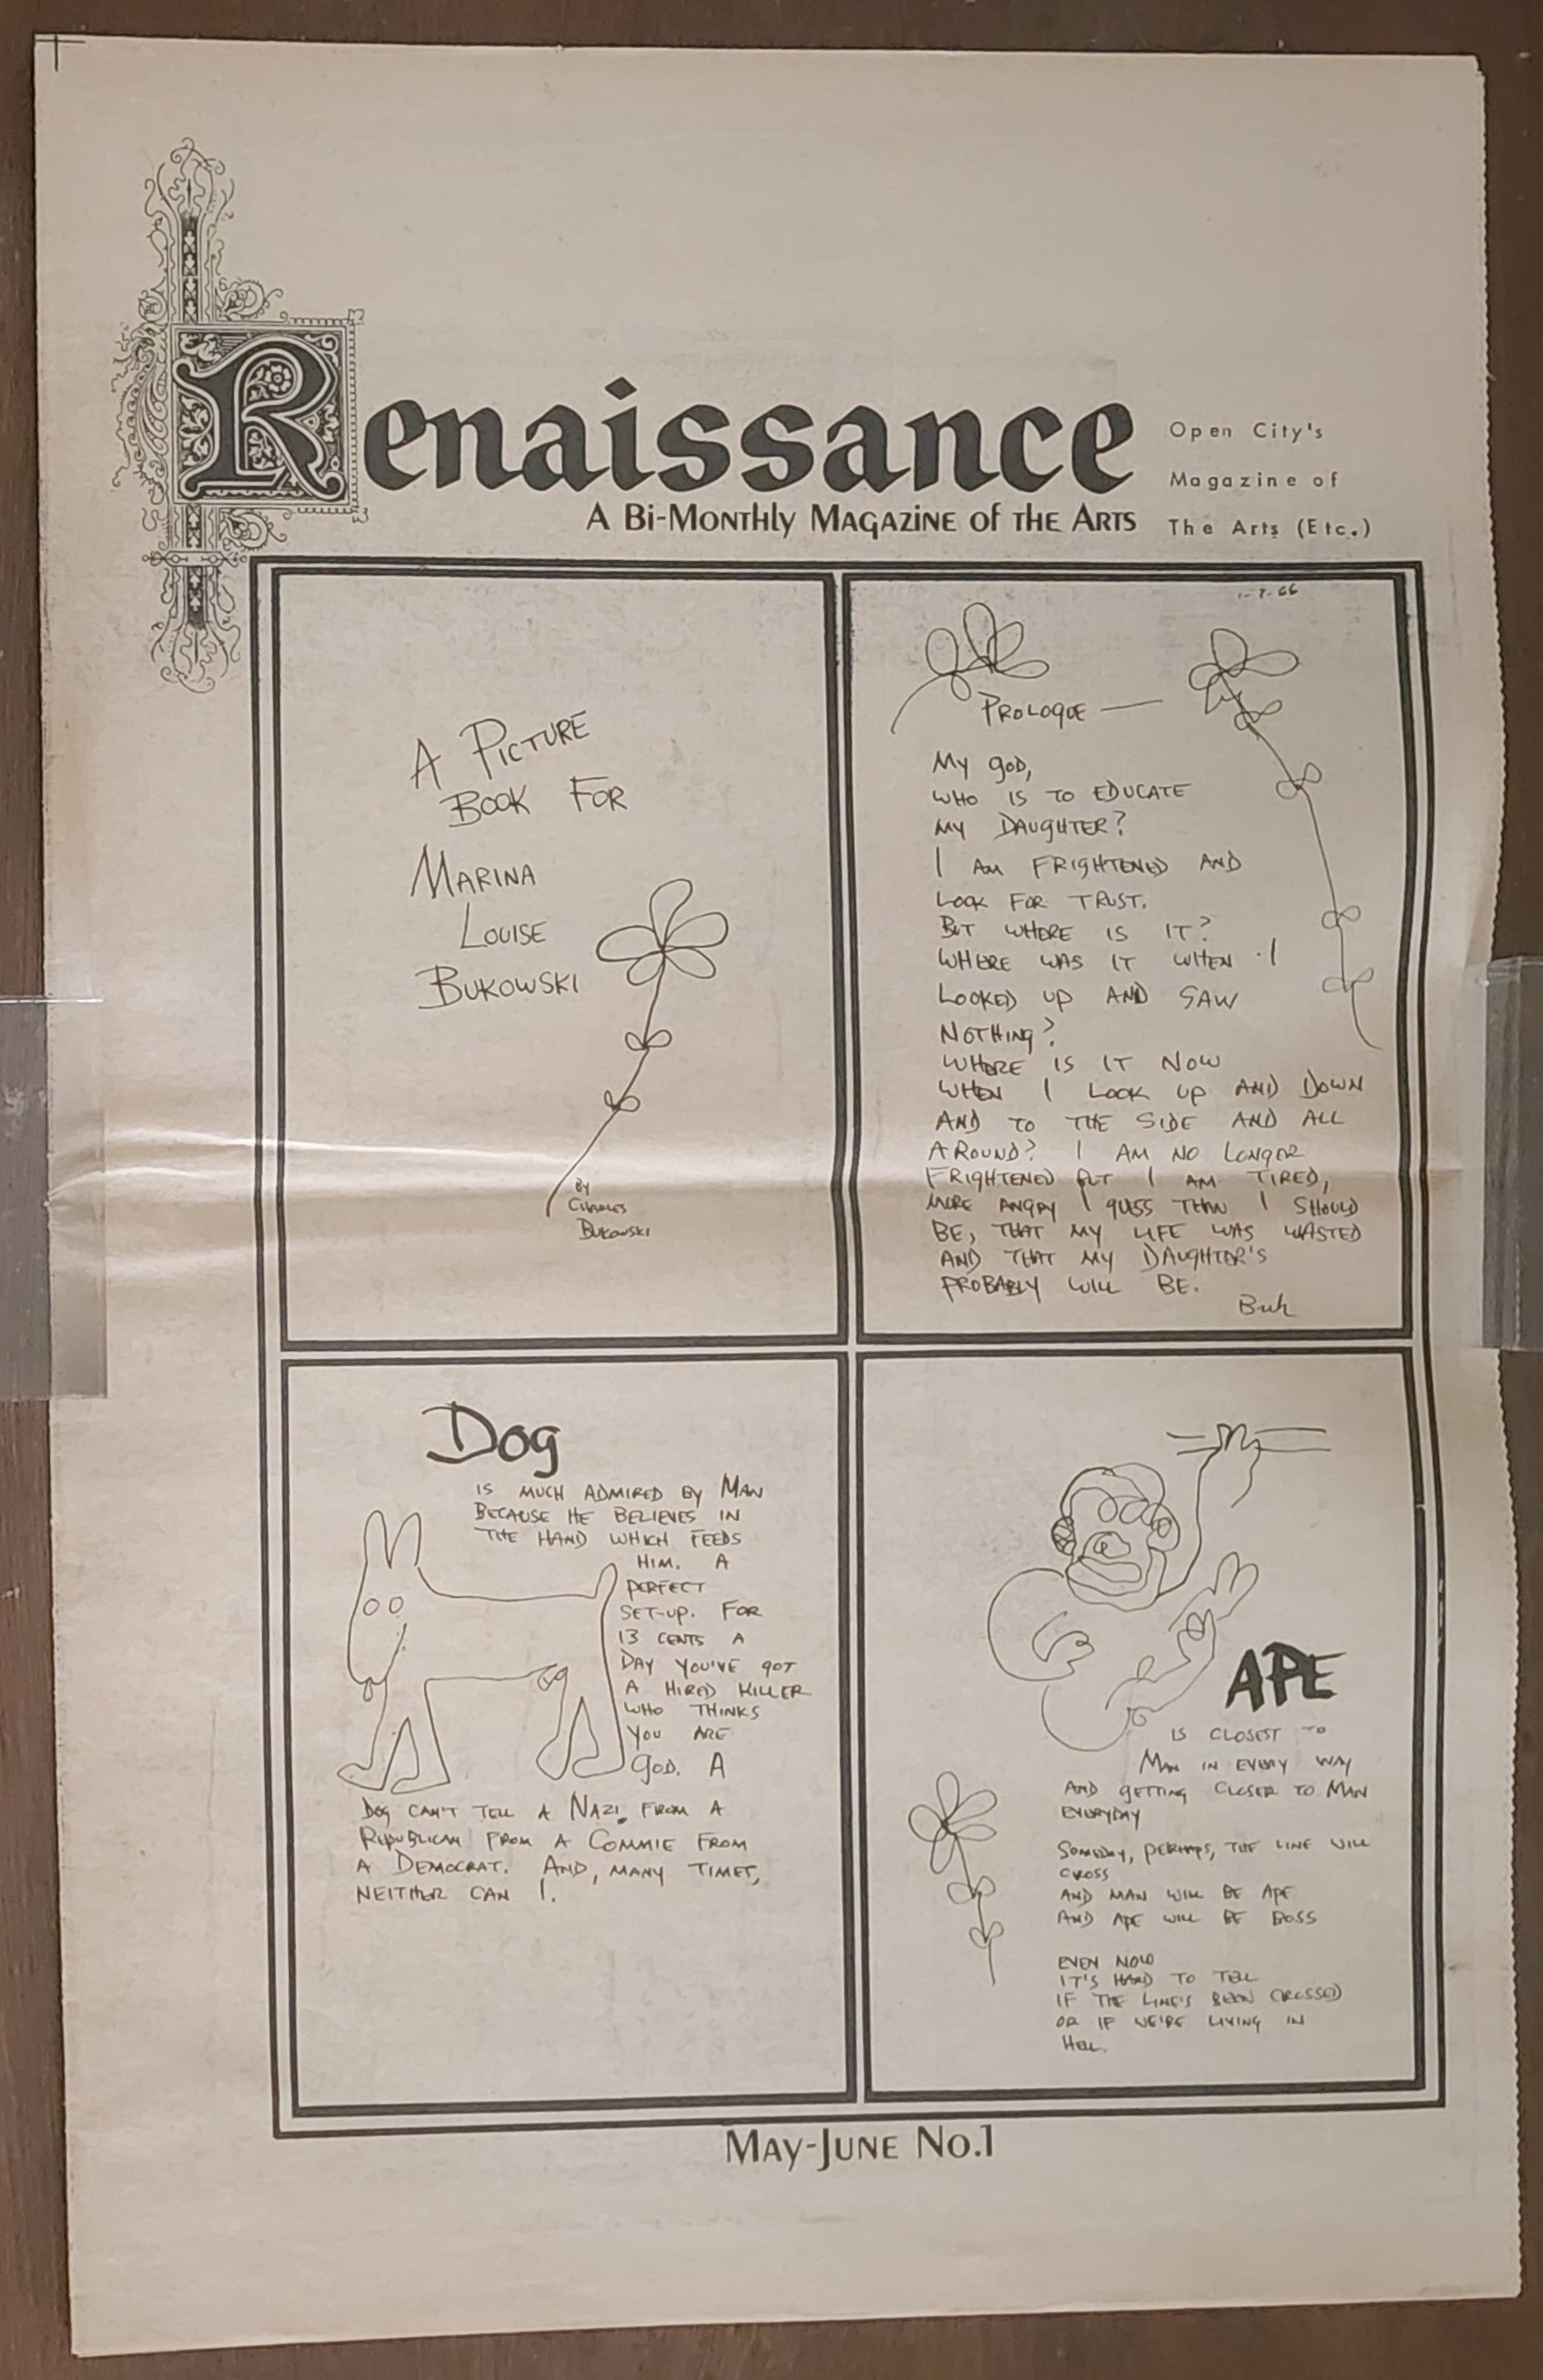 Renaissance
A Bi-Monthly Magazine of the Arts
Open City's
Magazine of
The Arts (Etc.)
A PICTURE
BOOK FOR
MARINA
LOUISE
BUKOWSKI
BY
CHARLES
BUKOWSKI
PROLOGUE —
MY GOD,
WHO IS TO EDUCATE
MY DAUGHTER?
I AM FRIGHTENED AND
LOOK FOR TRUST.
BUT WHERE IS IT?
WHERE WAS IT WHEN I
LOOKED UP AND SAW
NOTHING?
WHERE IS IT NOW
WHEN I LOOK UP AND DOWN
AND TO THE SIDE AND ALL
AROUND? I AM NO LONGER
FRIGHTENED BUT I AM TIRED,
MORE ANGRY I GUESS THAN I SHOULD
BE, THAT MY LIFE WAS WASTED
AND THAT MY DAUGHTER'S
PROBABLY WILL BE.
Buk
DOG
IS MUCH ADMIRED BY MAN
BECAUSE HE BELIEVES IN
THE HAND WHICH FEEDS
HIM. A
PERFECT
SET-UP. FOR
13 CENTS A
DAY YOU'VE GOT
A HIRED KILLER
WHO THINKS
YOU ARE
GOD. A
DOG CAN'T TELL A NAZI FROM A
REPUBLICAN FROM A COMMIE FROM
A DEMOCRAT. AND, MANY TIMES,
NEITHER CAN I.
APE
IS CLOSEST TO
MAN IN EVERY WAY
AND GETTING CLOSER TO MAN
EVERYDAY
SOMEDAY, PERHAPS, THE LINE WILL
CROSS
AND MAN WILL BE APE
AND APE WILL BE BOSS
EVEN NOW
IT'S HARD TO TELL
IF THE LINE'S BEEN CROSSED
OR IF WE'RE LIVING IN
HELL.
May-June No.1